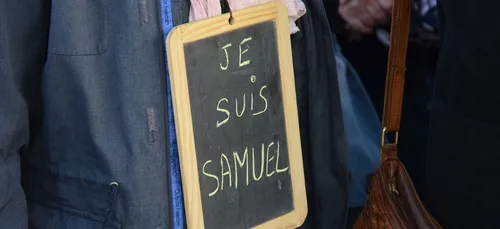 JE
suis
SAMUEL